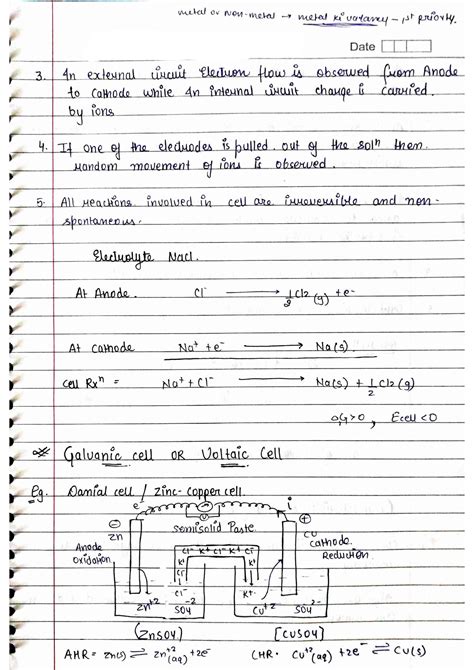 metal or non-metal → metal ki vatancy – 1st priority.
Date
3. In external circuit Electron flow is observed from Anode
to cathode while In internal circuit charge is carried
by ions
4. If one of the electrodes is pulled out of the solⁿ then
random movement of ions is observed.
5. All reactions involved in cell are irreversible and non-
spontaneous.
Electrolyte Nacl.
At Anode. Cl⁻ → 1/2 Cl2 (g) + e⁻
At cathode Na⁺ + e⁻ → Na(s).
Cell Rxⁿ = Na⁺ + Cl⁻ → Na(s) + 1/2 Cl2 (g)
G>0, Ecell <0
Galvanic cell OR Voltaic Cell
Eg. Danial cell / zinc-copper cell.
e⁻ i
⊖ ⊕
Zn Semisolid Paste Cu
Anode Cl⁻ K⁺ Cl⁻ K⁺ Cl⁻ cathode
Oxidation Reduction
K⁺ K⁺
Cl⁻
K⁺ K⁺
Zn⁺² SO4⁻² Cu⁺² SO4²⁻
(ZnSO4) [CUSO4]
AHR = Zn(s) ⇌ Zn⁺²(aq) + 2e⁻ CHR. Cu⁺²(aq) + 2e⁻ ⇌ Cu(s)